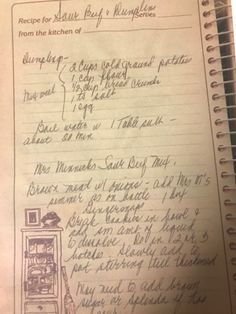 Recipe for Sour Beef & Dumplin
Serves
from the kitchen of
Dumpling -
2 cups cold ground potatoes
1 cup flour
1/2 cup bread crumbs
Mix well
1 ts salt
1 egg
Boil water w 1 Table salt -
about 20 min
Mrs. Minnicks Sour Beef Mix.
Brown meat w/ onions - add Mrs M's
simmer as on bottle 1 box
Gingersnaps
Break in bowl &
add sm amt of liquid
to dissolve. Do in 2 or 3
batches. Slowly add to
pot stirring till thickened
May need to add brown
sugar or splenda if too